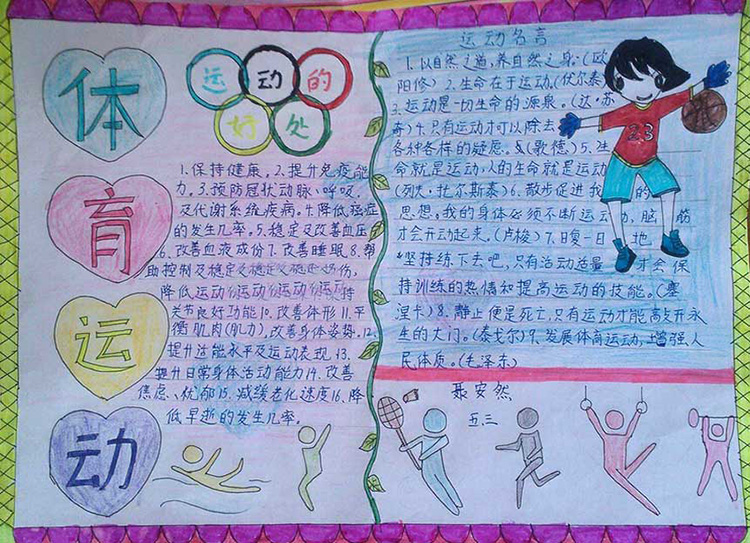 体
育
运
动
运动的
好处
1.保持健康。2.提升免疫能
力。3.预防冠状动脉、呼吸
及代谢系统疾病。4.降低癌症
的发生几率。5.稳定及改善血压
6.改善血液成份7.改善睡眠8.帮
助控制及稳定及稳定及稳定
降低运动伤运动伤运动伤运动
关节良好功能10.改善体形11.平
衡肌肉(肌力),改善身体姿势。12.
提升达能水平及运动表现13.
提升日常身体活动能力14.改善
焦虑、忧郁15.减缓老化速度16.降
低早逝的发生几率。
运动名言
1.以自然之道,养自然之身。(欧
阳修)2.生命在于运动。(伏尔泰)
3.运动是一切生命的源泉。(达·芬
奇)4.只有运动才可以除去
各种各样的疑虑。(歌德)5.生
命就是运动,人的生命就是运动
(列夫·托尔斯泰)6.散步促进我的
思想。我的身体必须不断运动,脑筋
才会开动起来。(卢梭)7.日复一日地
“坚持练下去吧,只有活动适量才会保
持训练的热情和提高运动的技能。(塞
涅卡)8.静止便是死亡,只有运动才能敲开永
生的大门。(泰戈尔)9、发展体育运动,增强人
民体质。(毛泽东)
23
聂安然
五.三